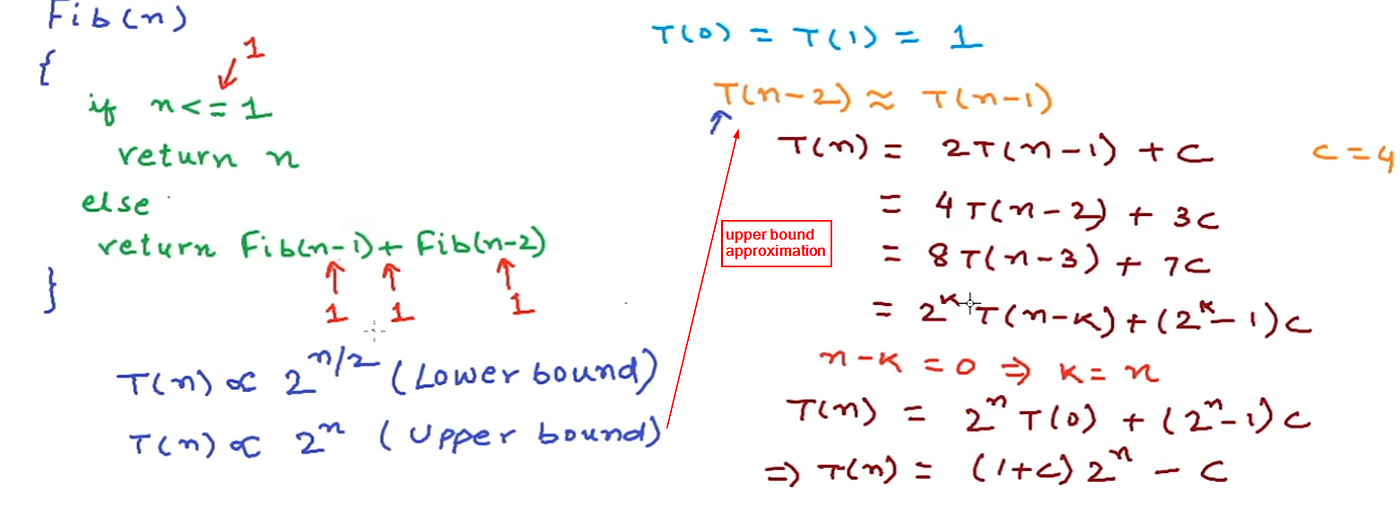 Fib(n)
{
1
if n<=1
return n
else
return Fib(n-1)+ Fib(n-2)
1 1 1
}
T(n) ∝ 2^{n/2} (Lower bound)
T(n) ∝ 2^n (Upper bound)
T(0) = T(1) = 1
T(n-2) ≈ T(n-1)
T(n) = 2T(n-1) + c
c=4
= 4T(n-2) + 3c
= 8T(n-3) + 7c
= 2^k T(n-k) + (2^k - 1) c
n-k = 0 ⇒ k = n
T(n) = 2^n T(0) + (2^n-1) c
⇒ T(n) = (1+c) 2^n - c
upper bound
approximation